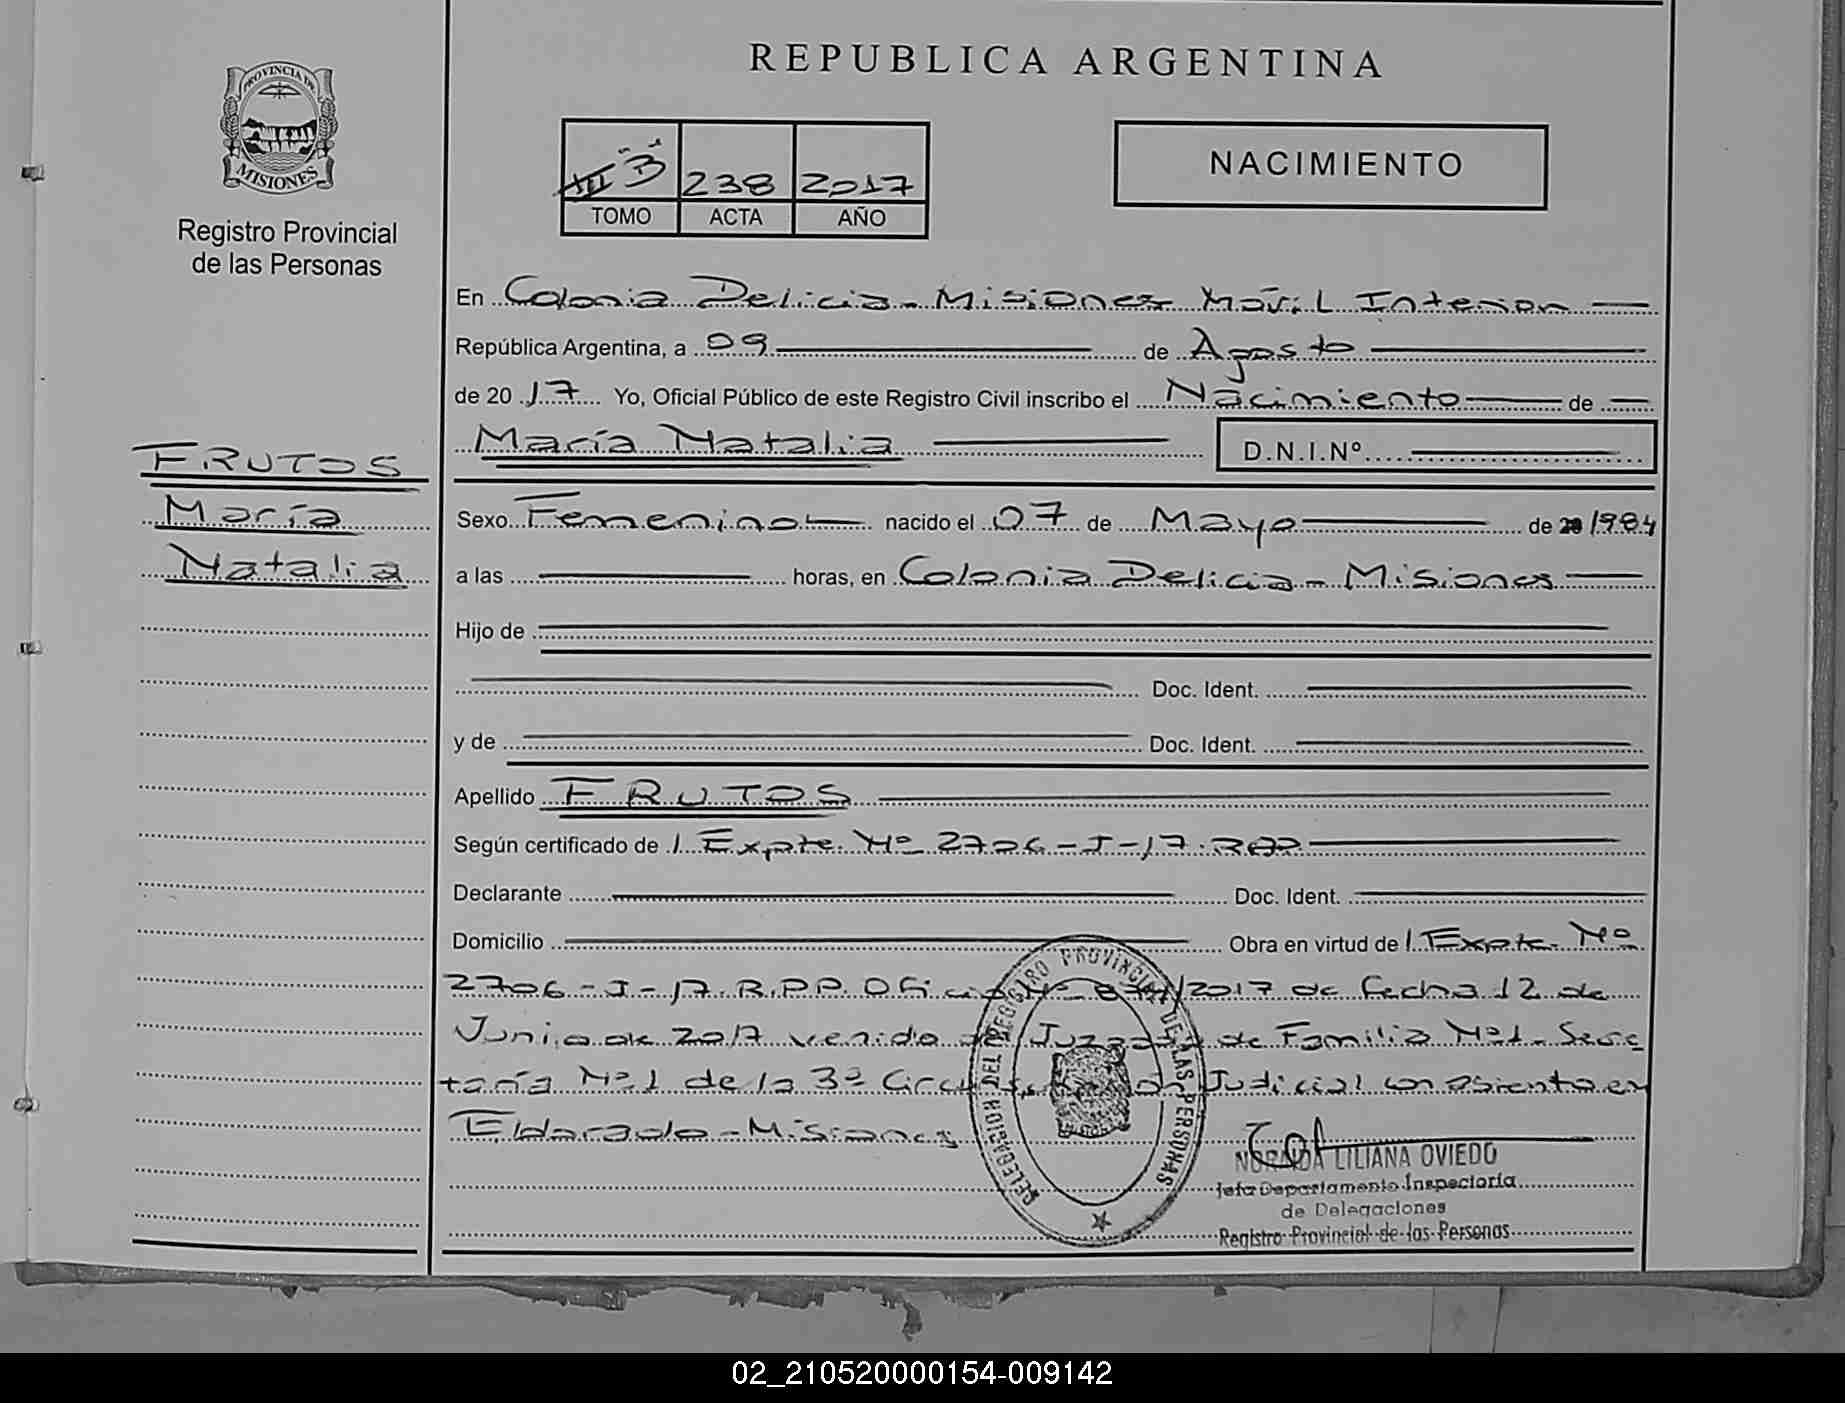 REPUBLICA ARGENTINA
PROVINCIA DE
MISIONES
Registro Provincial
de las Personas
III "B" 238 2017
TOMO ACTA AÑO
NACIMIENTO
En Colonia Delicia - Misiones Móvil Interior
República Argentina, a 09 de Agosto
de 2017 Yo, Oficial Público de este Registro Civil inscribo el Nacimiento de
María Natalia D.N.I.Nº
FRUTOS
María
Natalia
Sexo Femenino nacido el 07 de Mayo de 1984
a las horas, en Colonia Delicia - Misiones
Hijo de
Doc. Ident.
y de Doc. Ident.
Apellido FRUTOS
Según certificado de / Expte. Nº 2706-J-17. RPP
Declarante Doc. Ident.
Domicilio Obra en virtud de / Expte. Nº
2706-J-17. R.P.P. Oficio Nº /2017 de fecha 12 de
Junio de 2017 venido del Juzgado de Familia Nº1- Secre
taría Nº1 de la 3ª Circunscripción Judicial con asiento en
Eldorado - Misiones
DELEGACION DEL REGISTRO PROVINCIAL DE LAS PERSONAS
NORAIDA LILIANA OVIEDO
Jefa Departamento Inspectoría
de Delegaciones
Registro Provincial de las Personas
02_210520000154-009142